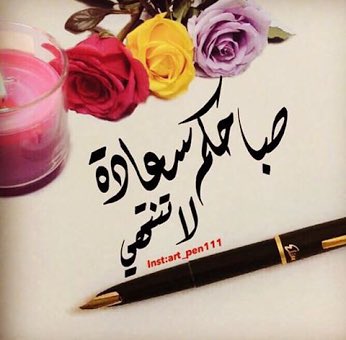 صباحكم سعادة
لا تنتهي
Inst:art_pen111